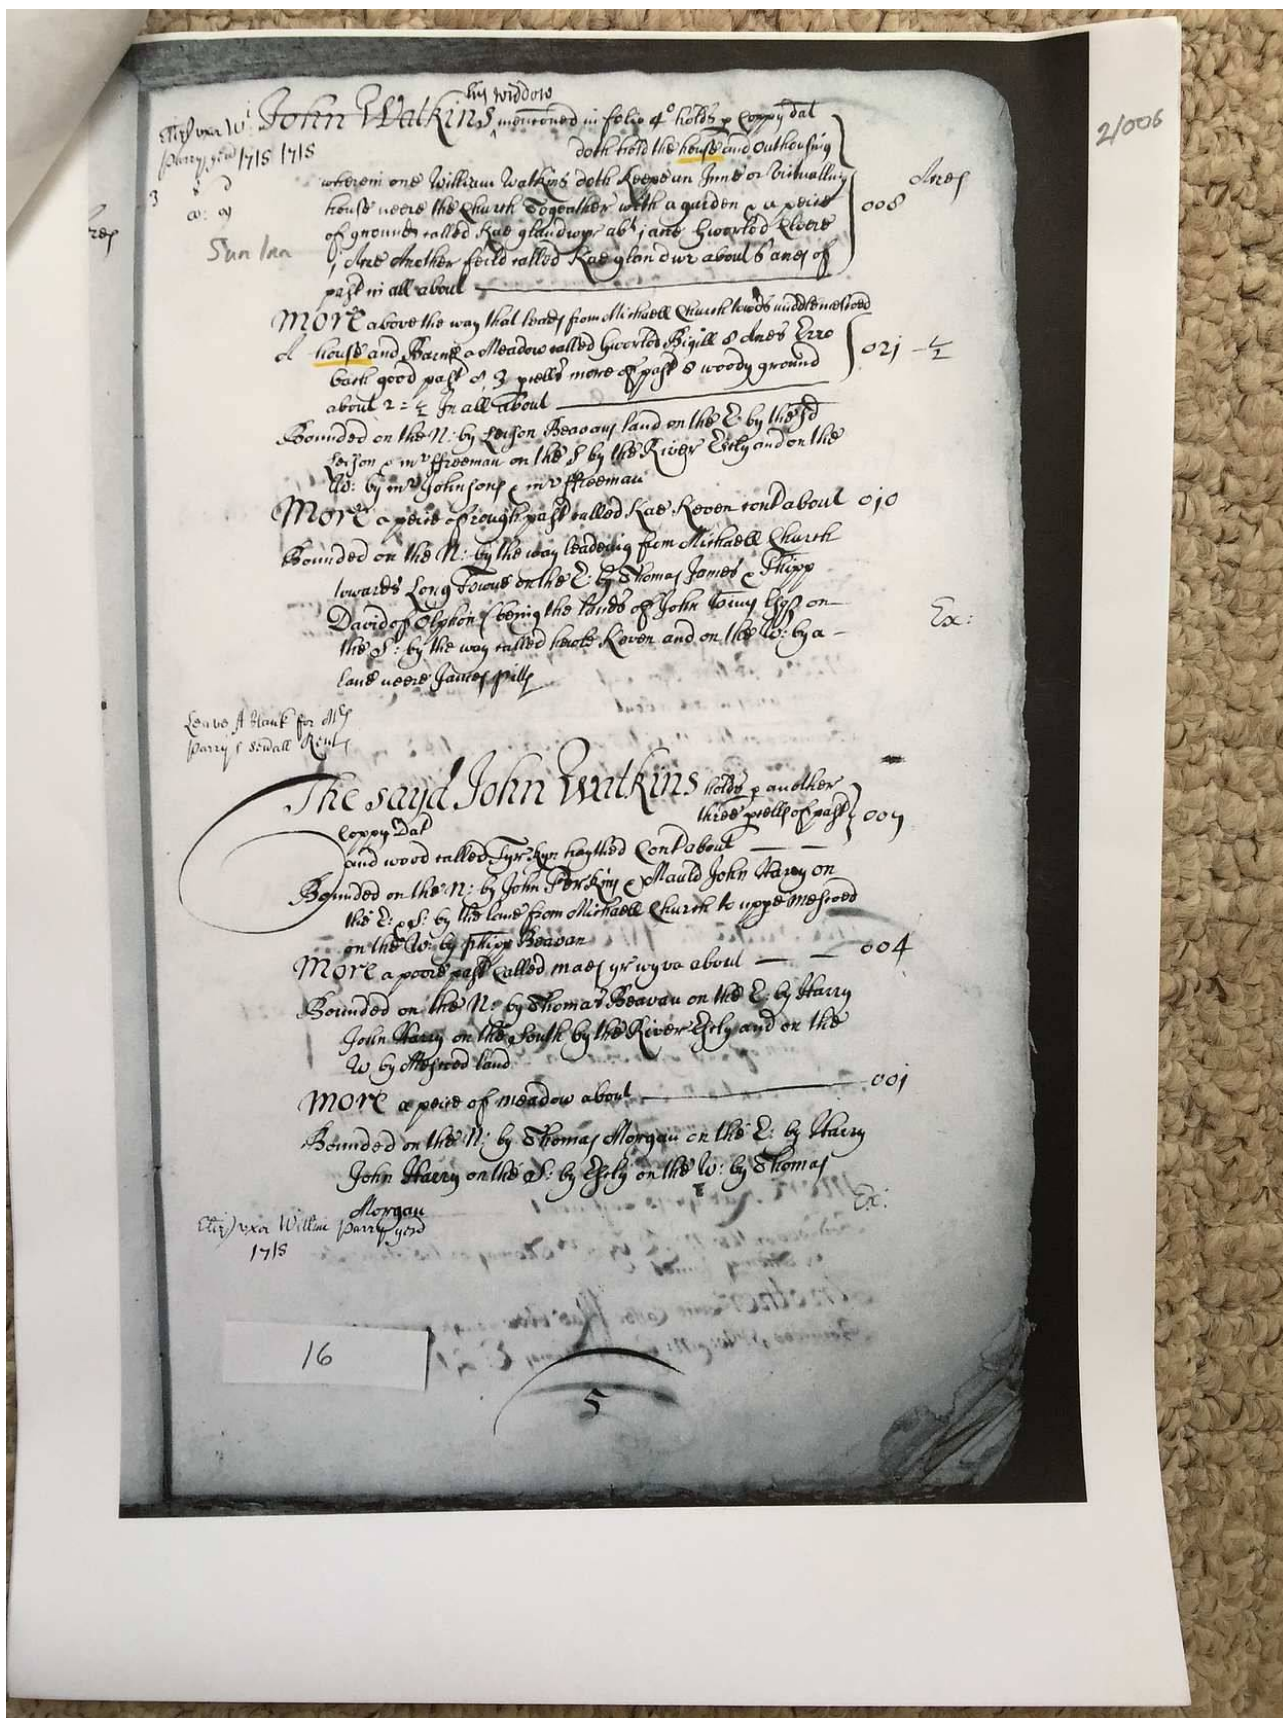 2/006
his widdow
John Watkins mentioned in folio 4° holds p Coppy dat
Parry gen 1715 1715
doth hold the house and Outhousing
wherein one William Watkins doth keepe an Inne or Victualling
Acres
3
house neere the Church Togeather with a garden & a peice
008
of ground called Kae glandwyr abt j acre Gworlod
Sun Inn
j Acre Another feild called Kae glan dwr about 6 acres of
past in all about
More above the way that leads from Michaell Church towds
A house and Barne a Meadow called Gworlod Bigill 8 Acres Erro
02j - ½
bach good past & 3 pcells more of past & woody ground
about 2 = ½ In all about
Bounded on the N: by Leison Beavans land on the E: by the sd
Leison & mr ffreeman on the S by the River Esely and on the
W: by mr Johnsons & mr ffreeman
More a peice of rough past called Kae Keven cont about 0j0
Bounded on the N: by the way leadeing from Michaell Church
towards Long Towne on the E: by Thomas James & Phipp
David of Olchon (being the lands of John Esqr on
Ex:
the S: by the way called Keven and on the W: by a
lane neere James
Leave A blank for Mrs
Parry's Rent
The sayd John Watkins holds p another
Coppy Dat
three pcells of past
009
and wood called Tyr Cont about
Bounded on the N: by John & Mauld John Harry on
the E: & S: by the lane from Michaell Church to uppe
on the W: by Phipp Beavan
More a poore past called maes yr wyva about 004
Bounded on the N: by Thomas Beavan on the E: by Harry
John Harry on the South by the River Esely and on the
W by land
More a peice of meadow about 00j
Bounded on the N: by Thomas Morgan on the E: by Harry
John Harry on the S: by Esely on the W: by Thomas
Morgan
Ex:
uxor Willm Parry
1715
16
5